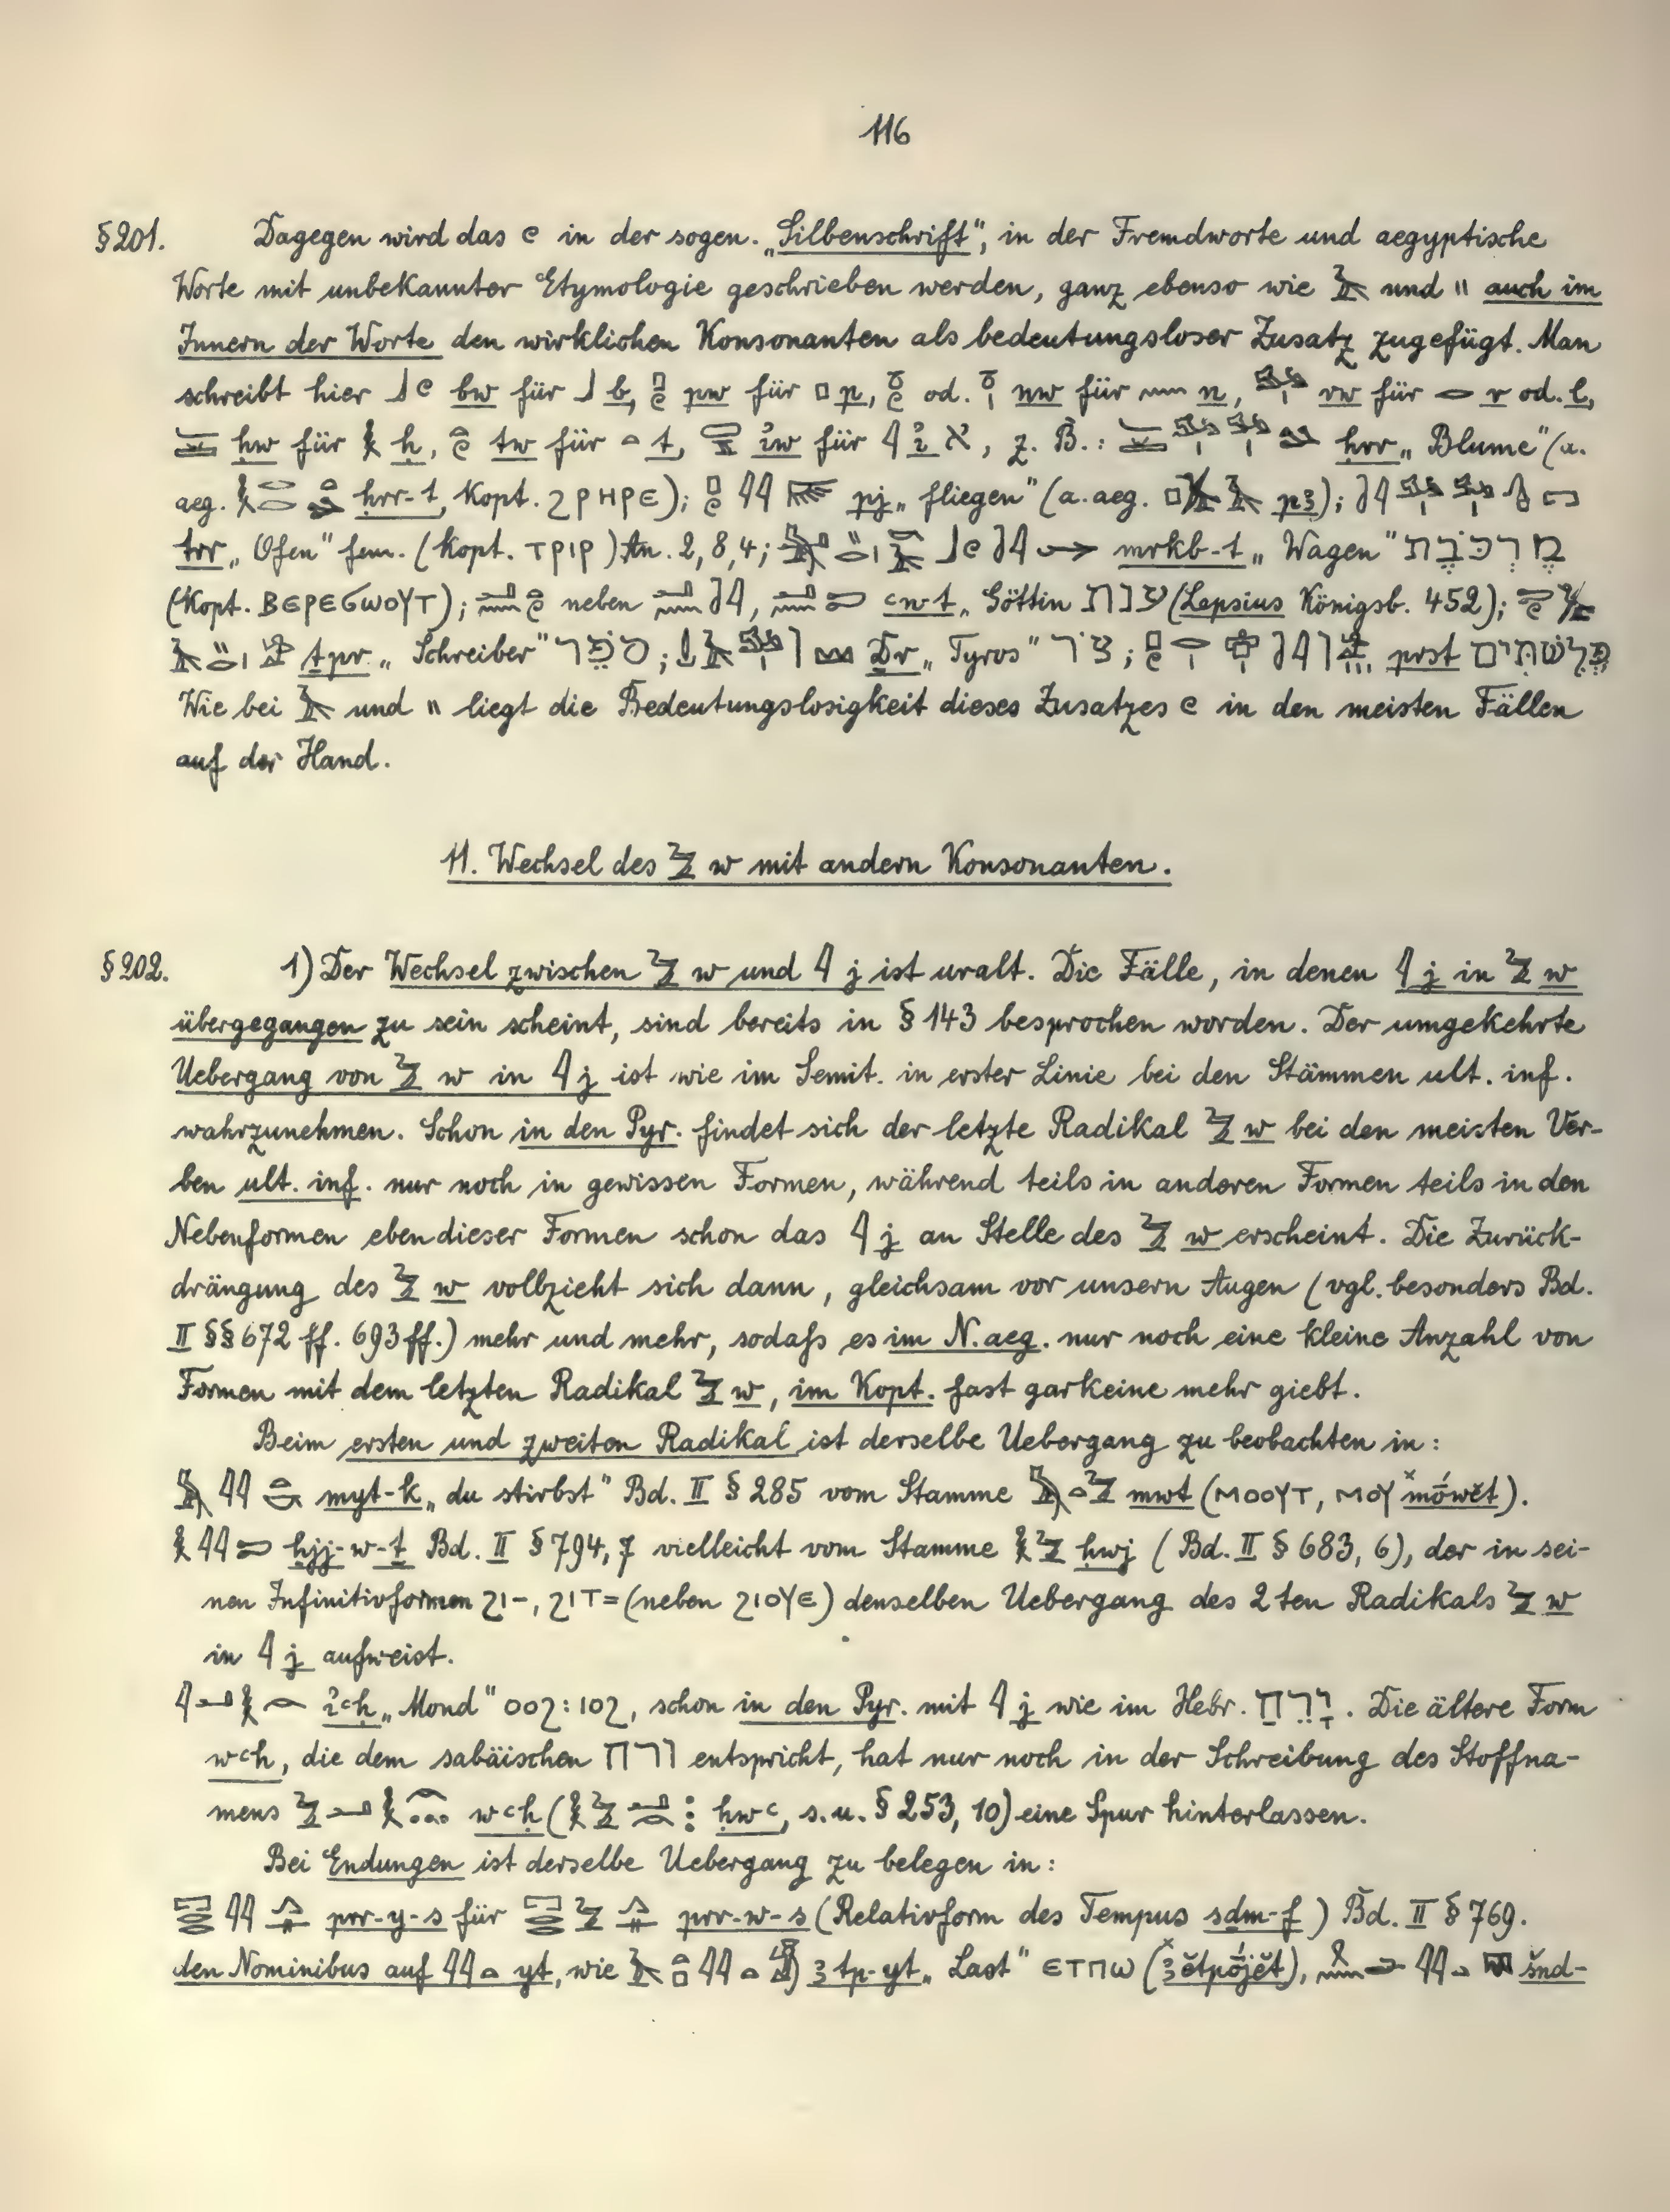 116
§201. Dagegen wird das 𓏲 in der sogen. „Silbenschrift", in der Fremdworte und aegyptische
Worte mit unbekannter Etymologie geschrieben werden, ganz ebenso wie 𓄿 und 𓏭 auch im
Innern der Worte den wirklichen Konsonanten als bedeutungsloser Zusatz zugefügt. Man
schreibt hier 𓃀𓏲 bw für 𓃀 b, 𓊪𓏲 pw für 𓊪 p, 𓏌𓏲 od. 𓏌𓏤 nw für 𓈖 n, rw für 𓂋 r od. l,
ḥw für 𓎛 ḥ, 𓏏𓏲 tw für 𓏏 t, ı͗w für 𓇋 ı͗ א, z. B.: ḥrr „Blume" (a.
aeg. 𓎛𓂋𓂋 ḥrr-t, Kopt. ϩⲣⲏⲣⲉ); 𓊪𓏲𓇋𓇋 pj „fliegen" (a. aeg. pꜣ);
trr „Ofen" fem. (Kopt. ⲧⲣⲓⲣ) An. 2,8,4; mrkb-t „Wagen" מֶרְכֶּבֶת
(Kopt. ⲃⲉⲣⲉϭⲱⲟⲩⲧ); neben , ꜥnt „Göttin ענת (Lepsius Königsb. 452);
ṯpr „Schreiber" סֹפֵר; Ḏr „Tyros" צֹר; prst פְּלִשְׁתִּים
Wie bei 𓄿 und 𓏭 liegt die Bedeutungslosigkeit dieses Zusatzes 𓏲 in den meisten Fällen
auf der Hand.
11. Wechsel des 𓅱 w mit andern Konsonanten.
§202. 1) Der Wechsel zwischen 𓅱 w und 𓇋 j ist uralt. Die Fälle, in denen 𓇋 j in 𓅱 w
übergegangen zu sein scheint, sind bereits in § 143 besprochen worden. Der umgekehrte
Uebergang von 𓅱 w in 𓇋 j ist wie im Semit. in erster Linie bei den Stämmen ult. inf.
wahrzunehmen. Schon in den Pyr. findet sich der letzte Radikal 𓅱 w bei den meisten Ver-
ben ult. inf. nur noch in gewissen Formen, während teils in anderen Formen teils in den
Nebenformen eben dieser Formen schon das 𓇋 j an Stelle des 𓅱 w erscheint. Die Zurück-
drängung des 𓅱 w vollzieht sich dann, gleichsam vor unsern Augen (vgl. besonders Bd.
II §§ 672 ff. 693 ff.) mehr und mehr, sodaß es im N. aeg. nur noch eine kleine Anzahl von
Formen mit dem letzten Radikal 𓅱 w, im Kopt. fast gar keine mehr giebt.
Beim ersten und zweiten Radikal ist derselbe Uebergang zu beobachten in:
𓅓𓇋𓇋𓏏𓎡 myt-k „du stirbst" Bd. II § 285 vom Stamme 𓅓𓏏𓅱 mwt (ⲙⲟⲟⲩⲧ, ⲙⲟⲩ ˣmówĕt).
𓎛𓇋𓇋𓍿 ḥjj-w-ṯ Bd. II § 794, 7 vielleicht vom Stamme 𓎛𓅱 ḥwj (Bd. II § 683, 6), der in sei-
nen Infinitivformen ϩⲓ-, ϩⲓⲧ= (neben ϩⲓⲟⲩⲉ) denselben Uebergang des 2ten Radikals 𓅱 w
in 𓇋 j aufweist.
𓇋𓂝𓎛 ı͗ꜥḥ „Mond" ⲟⲟϩ : ⲓⲟϩ, schon in den Pyr. mit 𓇋 j wie im Hebr. יָרֵחַ. Die ältere Form
wꜥḥ, die dem sabäischen ורח entspricht, hat nur noch in der Schreibung des Stoffna-
mens 𓅱𓂝𓎛 wꜥḥ (𓎛𓅱𓂝 ḥwꜥ, s. u. § 253, 10) eine Spur hinterlassen.
Bei Endungen ist derselbe Uebergang zu belegen in:
𓉐𓂋𓂋𓇋𓇋𓂻𓋴 prr-y-s für 𓉐𓂋𓂋𓅱𓂻𓋴 prr-w-s (Relativform des Tempus sḏm-f) Bd. II § 769.
den Nominibus auf 𓇋𓇋𓏏 yt, wie 𓄿𓏏𓊪𓇋𓇋𓏏 ꜣtp-yt „Last" ⲉⲧⲡⲱ (ˣꜣĕtpójĕt), 𓇋𓇋𓏏 šnd-